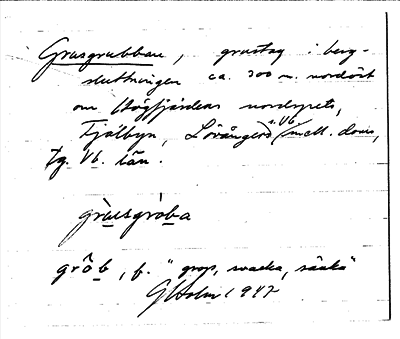 Grusgrubban, grustag i berg-
sluttningen ca. 300 m. nordöst
om Högfjärdens nordspets,
Fjälbyn, Lövångers s. Vb. mell. doms,
Vb. län.
grùsgròba
grô̱b, f. "grop, svacka, sänka"
G Holm 1947